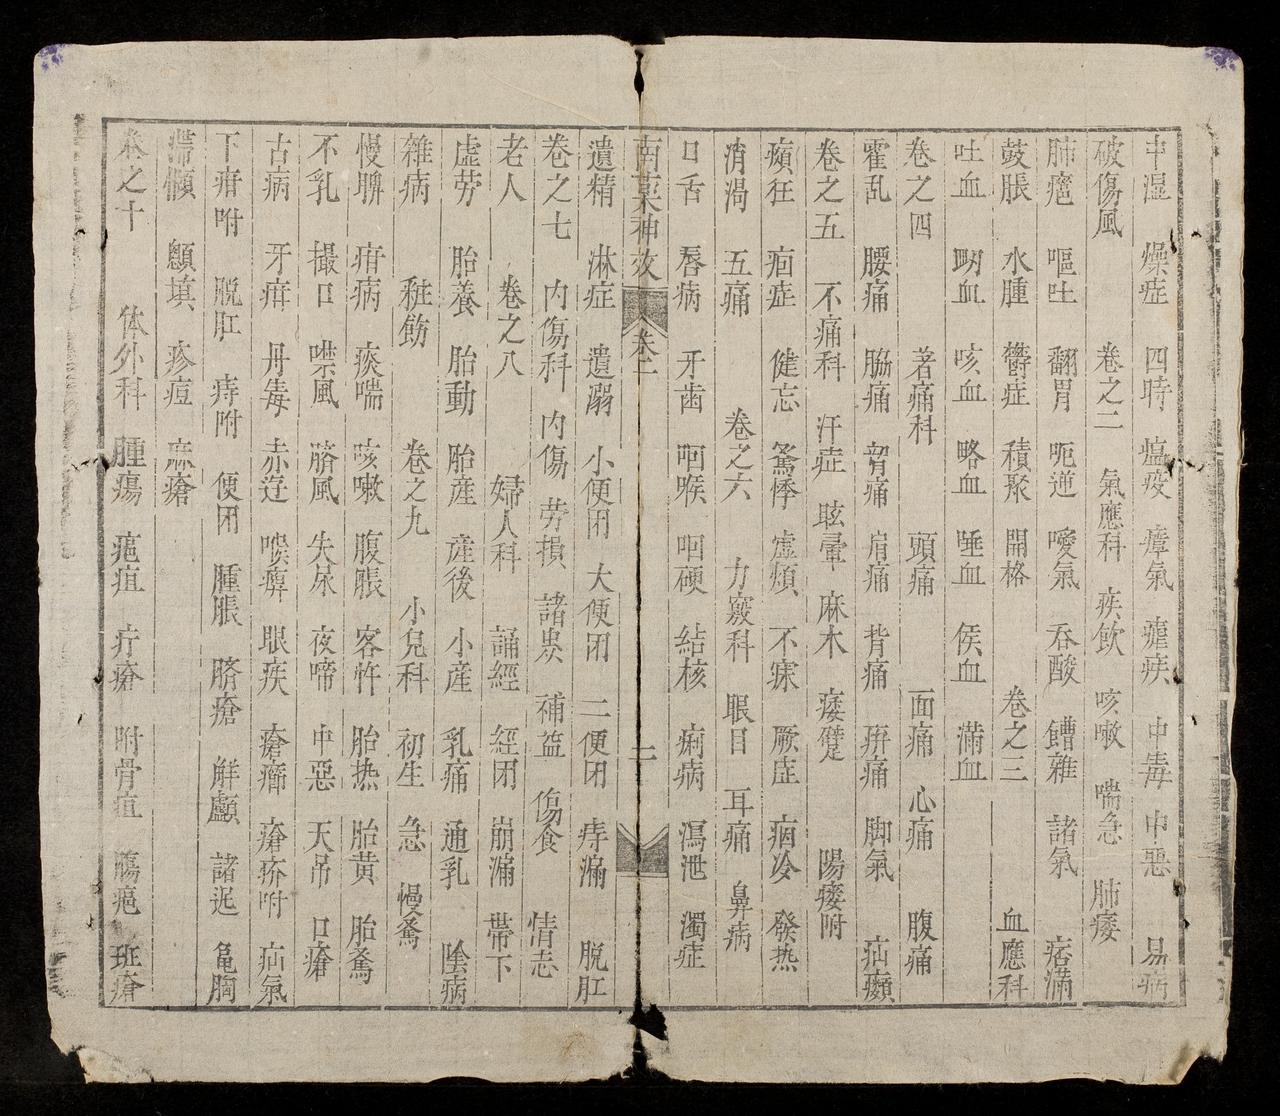 中濕 燥症 四時 瘟疫 瘴氣 瘧疾 中毒 中惡 易病
破傷風 卷之二 氣應科 疾飲 咳嗽 喘急 肺痿
肺癰 嘔吐 翻胃 呃逆 噯氣 吞酸 饍雜 諸氣 痞滿
鼓脹 水腫 欝症 積聚 開格 卷之三 血應科
吐血 衂血 咳血 略血 唾血 侯血 滿血
卷之四 著痛科 頭痛 面痛 心痛 腹痛
霍乱 腰痛 脇痛 臂痛 肩痛 背痛 痹痛 脚氣 疝㿗
卷之五 不痛科 汗症 眩暈 麻木 痿躄 陽痿附
癲狂 疸症 健忘 驚悸 虛煩 不寐 厥症 痼冷 發热
消渴 五痛 卷之六 力竅科 眼目 耳痛 鼻病
口舌 唇病 牙齒 咽喉 咽硬 結核 痢病 瀉泄 濁症
南藥神效 卷一 二
遺精 淋症 遺溺 小便閉 大便閉 二便閉 痔漏 脫肛
卷之七 內傷科 內傷 劳損 諸虫 補益 傷食 情志
老人 卷之八 婦人科 誦經 經閉 崩漏 帶下
虛劳 胎養 胎動 胎産 産後 小産 乳痛 通乳 陰病
雜病 粧餙 卷之九 小兒科 初生 急 慢驚
慢脾 疳病 痰喘 咳嗽 腹脹 客忤 胎热 胎黃 胎驚
不乳 撮口 噤風 臍風 失尿 夜啼 中惡 天吊 口瘡
古病 牙疳 丹毒 赤逰 喉痹 眼疾 瘡癤 瘡疥附 疝氣
下疳附 脫肛 痔附 便閉 腫脹 臍瘡 解顱 諸迟 龜胸
滯頥 顖填 疹痘 麻瘡
卷之十 体外科 腫瘍 疤疽 疔瘡 附骨疽 瘍疤 班瘡